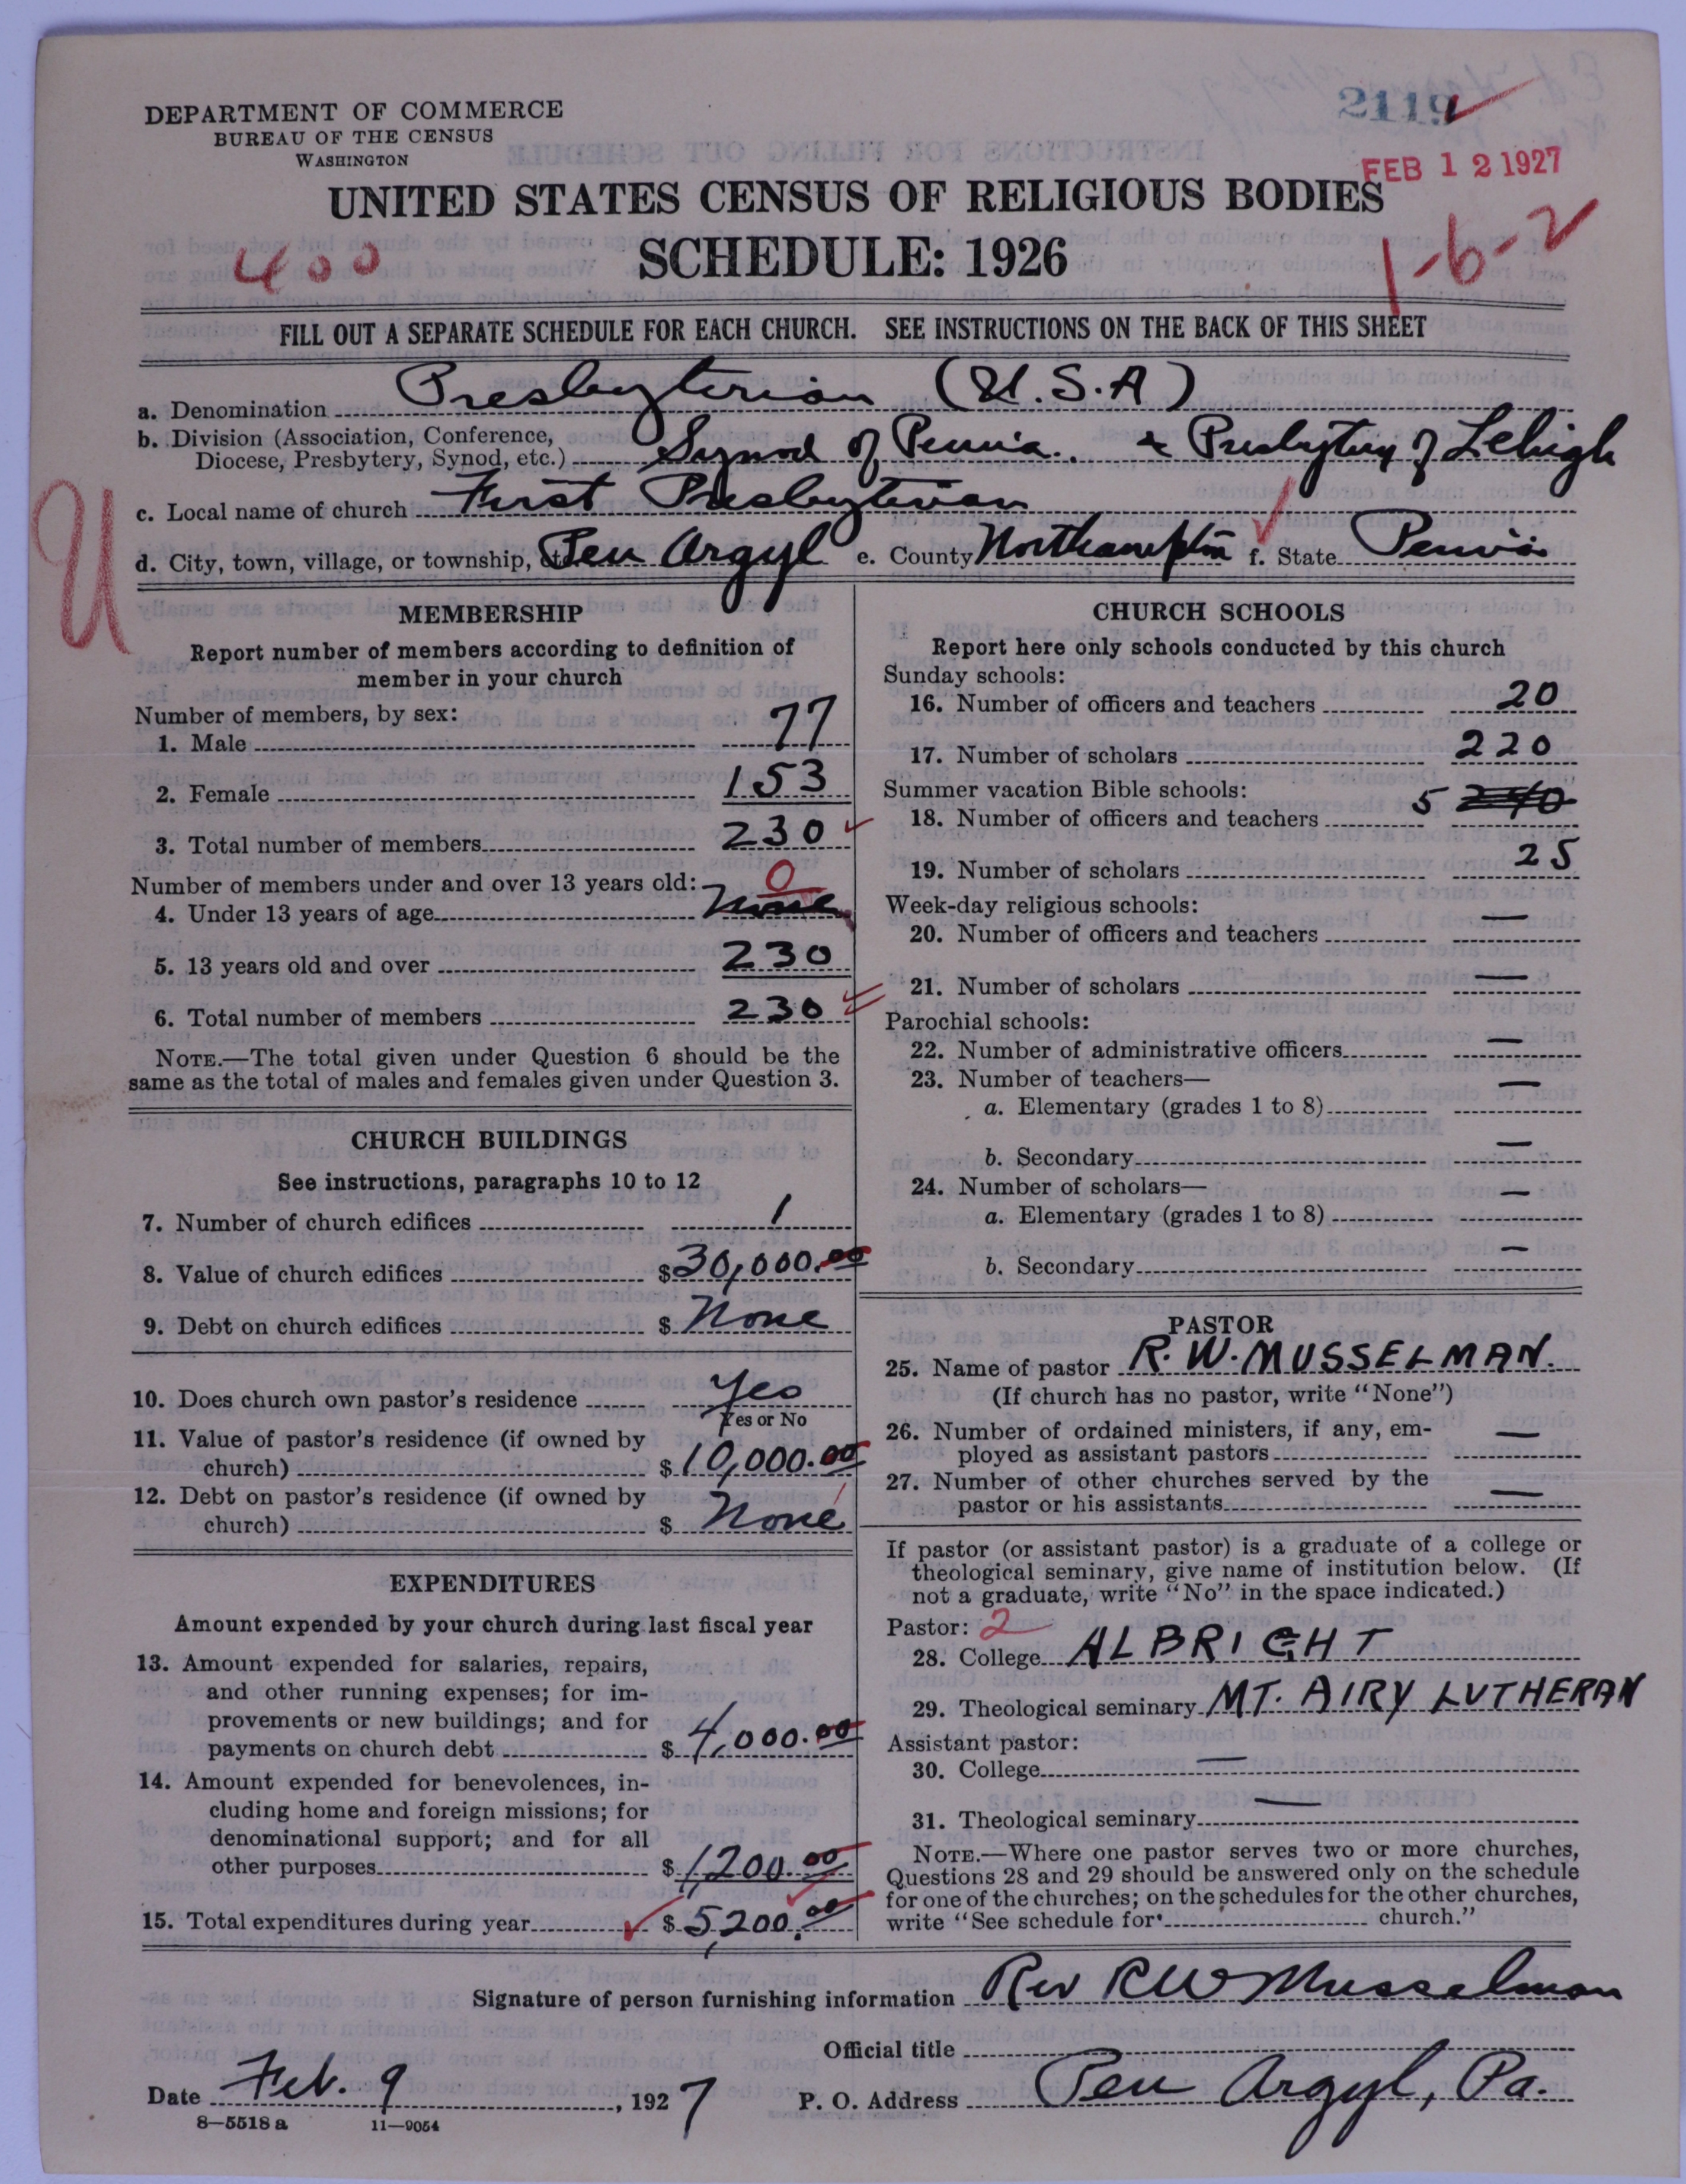 2119
DEPARTMENT OF COMMERCE
BUREAU OF THE CENSUS
WASHINGTON
FEB 12 1927
UNITED STATES CENSUS OF RELIGIOUS BODIES
400
SCHEDULE: 1926
1-6-2
FILL OUT A SEPARATE SCHEDULE FOR EACH CHURCH. SEE INSTRUCTIONS ON THE BACK OF THIS SHEET
a. Denomination Presbyterian (U.S.A)
b. Division (Association, Conference,
Diocese, Presbytery, Synod, etc.) Synod of Penna. & Presbytery of Lehigh
U
c. Local name of church First Presbyterian
d. City, town, village, or township, etc. Pen Argyl e. County Northampton f. State Penna
MEMBERSHIP
Report number of members according to definition of
member in your church
Number of members, by sex:
1. Male 77
2. Female 153
3. Total number of members 230
Number of members under and over 13 years old: 0
4. Under 13 years of age None
5. 13 years old and over 230
6. Total number of members 230
NOTE.—The total given under Question 6 should be the
same as the total of males and females given under Question 3.
CHURCH BUILDINGS
See instructions, paragraphs 10 to 12
7. Number of church edifices 1
8. Value of church edifices $30,000.00
9. Debt on church edifices $ None
10. Does church own pastor's residence Yes
Yes or No
11. Value of pastor's residence (if owned by
church) $10,000.00
12. Debt on pastor's residence (if owned by
church) $ None
EXPENDITURES
Amount expended by your church during last fiscal year
13. Amount expended for salaries, repairs,
and other running expenses; for im-
provements or new buildings; and for
payments on church debt $4,000.00
14. Amount expended for benevolences, in-
cluding home and foreign missions; for
denominational support; and for all
other purposes $1,200.00
15. Total expenditures during year $5,200.00
CHURCH SCHOOLS
Report here only schools conducted by this church
Sunday schools:
16. Number of officers and teachers 20
17. Number of scholars 220
Summer vacation Bible schools:
18. Number of officers and teachers 5 240
19. Number of scholars 25
Week-day religious schools:
20. Number of officers and teachers —
21. Number of scholars —
Parochial schools:
22. Number of administrative officers —
23. Number of teachers—
a. Elementary (grades 1 to 8) —
b. Secondary —
24. Number of scholars—
a. Elementary (grades 1 to 8) —
b. Secondary —
PASTOR
25. Name of pastor R. W. MUSSELMAN.
(If church has no pastor, write "None")
26. Number of ordained ministers, if any, em-
ployed as assistant pastors —
27. Number of other churches served by the
pastor or his assistants —
If pastor (or assistant pastor) is a graduate of a college or
theological seminary, give name of institution below. (If
not a graduate, write "No" in the space indicated.)
Pastor: 2
28. College ALBRIGHT
29. Theological seminary MT. AIRY LUTHERAN
Assistant pastor:
30. College —
31. Theological seminary —
NOTE.—Where one pastor serves two or more churches,
Questions 28 and 29 should be answered only on the schedule
for one of the churches; on the schedules for the other churches,
write "See schedule for church."
Signature of person furnishing information Rev R W Musselman
Official title
Date Feb. 9, 1927 P. O. Address Pen Argyl, Pa.
8—5518 a 11—9054